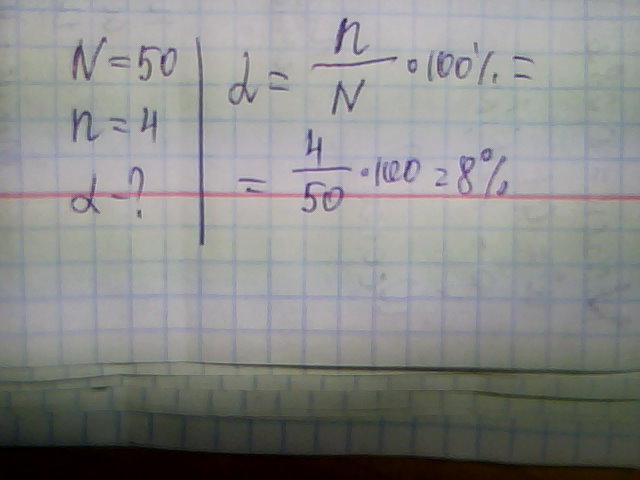 N=50
n=4
α-?
α = n/N · 100% =
= 4/50 · 100 = 8%